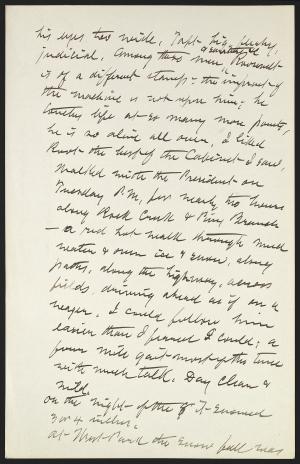 his eyes too wide, Taft big, bulky,
judicial. Among these men Roosevelt
is of a different stamp - the imprint of
the machine is not upon him; he
touches life at so many more points,
he is so alive all over. I liked
Root the best of the Cabinet I saw.
Walked with the President on
Tuesday P.M. for nearly two hours
along Rock Creek & Piny Branch
— a red hot walk through mud
water & over ice & snow, along
paths, along the highway, across
fields, driving ahead as if on a
wager. I could follow him
easier than I feared I could; a
four mile gait most of the time
with much talk. Day clear &
mild.
on the night of the 8 it snowed
3 or 4 inches.
at West Park the snow fall was